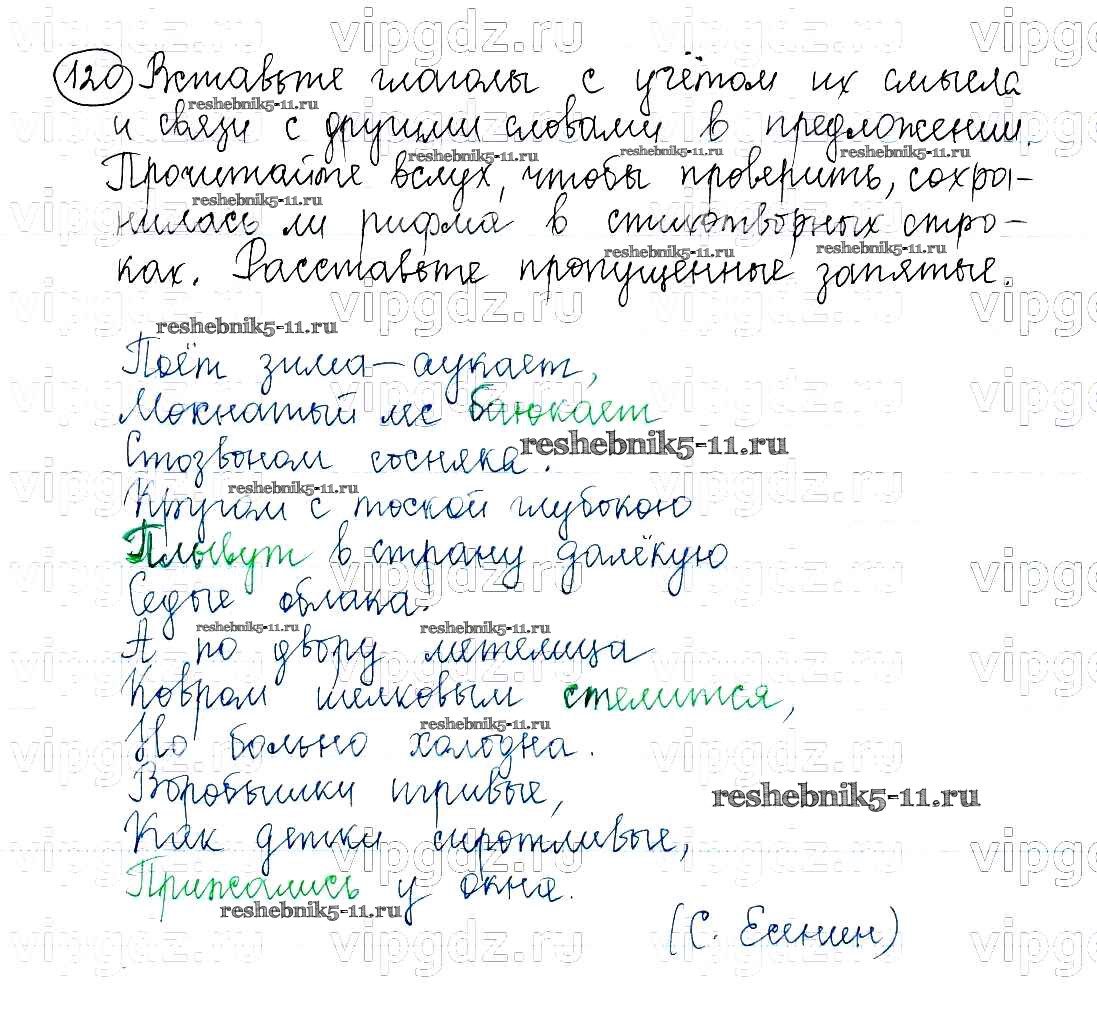 120 Вставьте глаголы с учётом их смысла
и связи с другими словами в предложении.
Прочитайте вслух, чтобы проверить, сохра-
нилась ли рифма в стихотворных стро-
ках. Расставьте пропущенные запятые.
Поёт зима – аукает,
Мохнатый лес баюкает
Стозвоном сосняка.
Кругом с тоской глубокою
Плывут в страну далёкую
Седые облака.
А по двору метелица
Ковром шелковым стелится,
Но больно холодна.
Воробышки игривые,
Как детки сиротливые,
Прижались у окна.
(С. Есенин)
vipgdz.ru
reshebnik5-11.ru